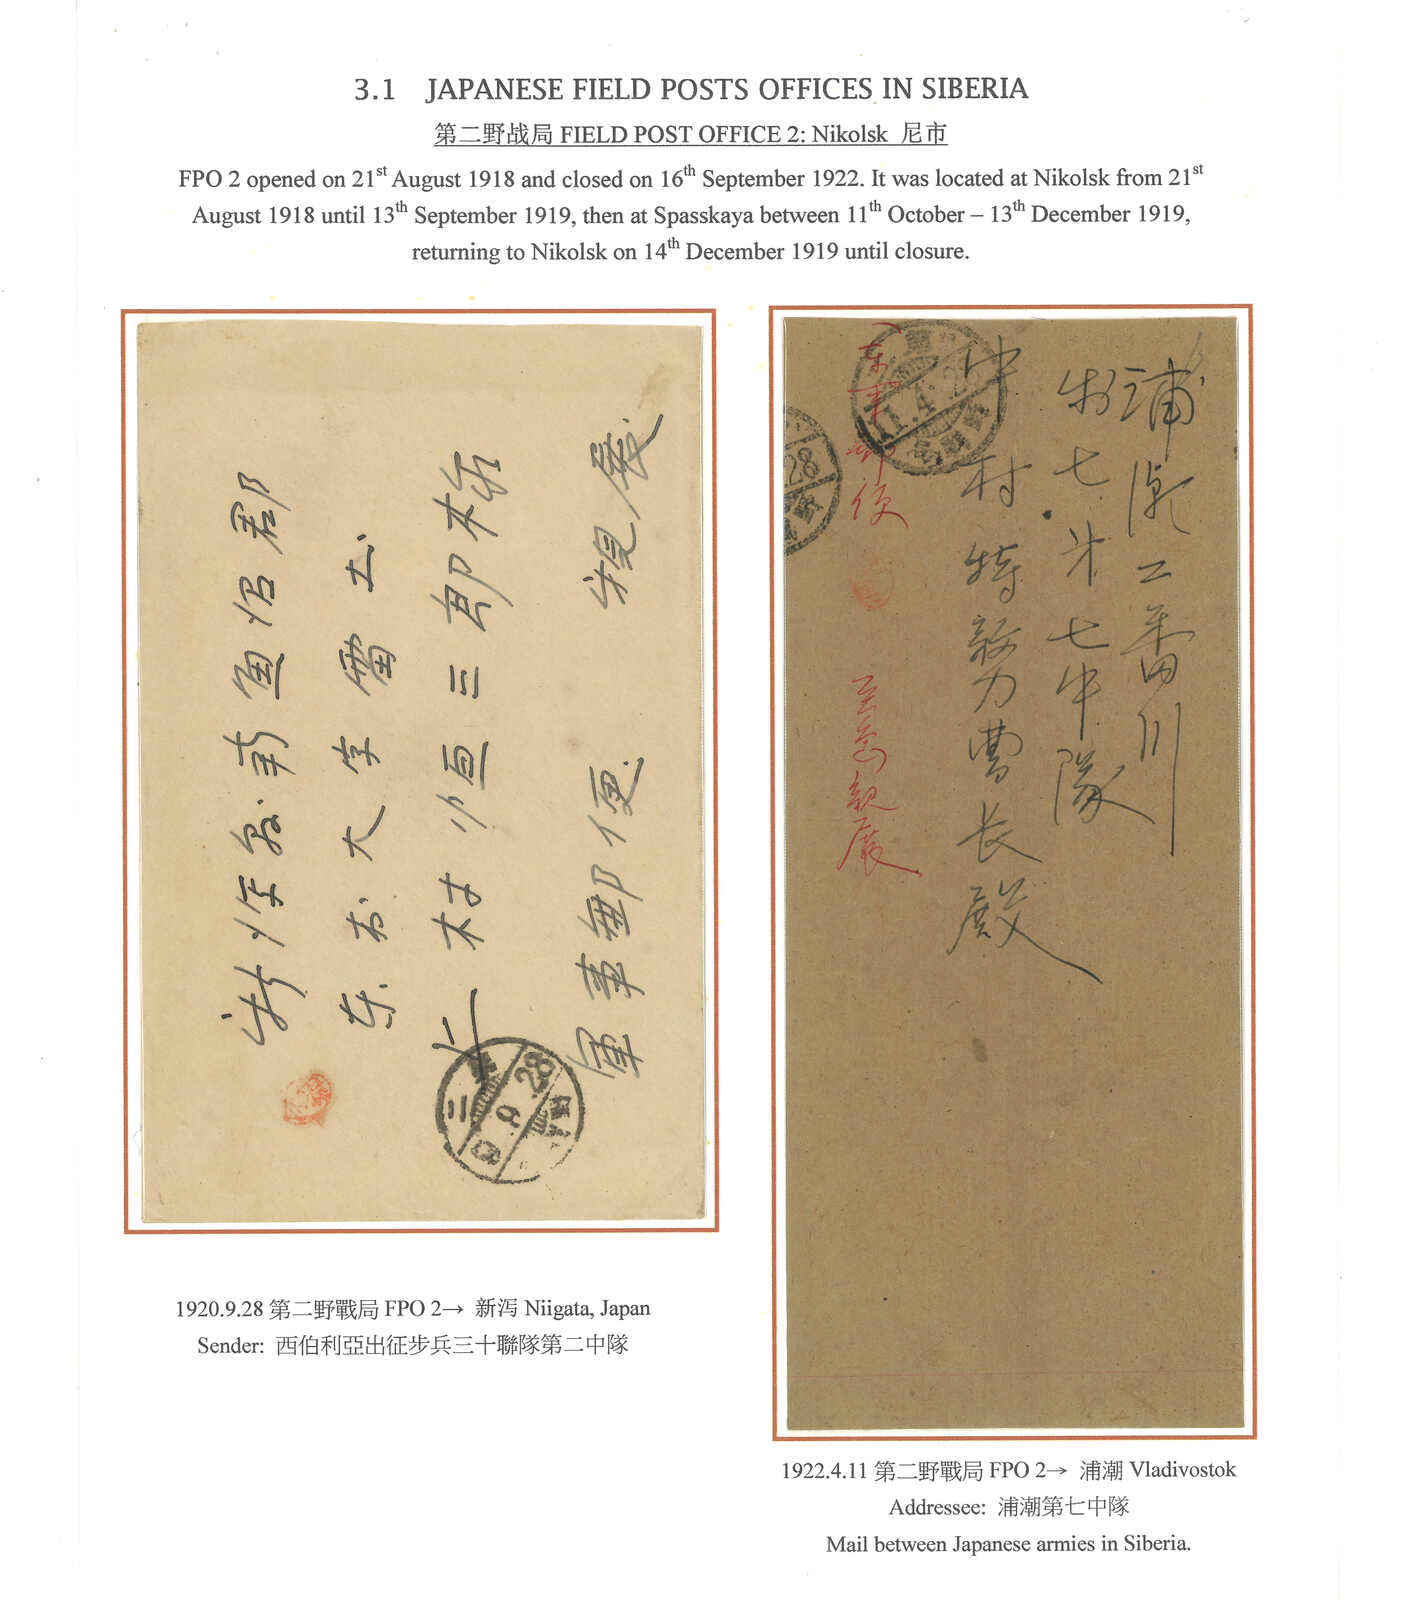 3.1 JAPANESE FIELD POSTS OFFICES IN SIBERIA
第二野战局 FIELD POST OFFICE 2: Nikolsk 尼市
FPO 2 opened on 21st August 1918 and closed on 16th September 1922. It was located at Nikolsk from 21st
August 1918 until 13th September 1919, then at Spasskaya between 11th October – 13th December 1919,
returning to Nikolsk on 14th December 1919 until closure.
軍事郵便 親展
村恒三郎様
東大字雷土
新南魚沼郡
二
9.9.28
浦潮二番川
七中隊
中村特務曹長殿
軍事郵便
親展
11.4.28
28
1920.9.28 第二野戰局 FPO 2→ 新泻 Niigata, Japan
Sender: 西伯利亞出征步兵三十聯隊第二中隊
1922.4.11 第二野戰局 FPO 2→ 浦潮 Vladivostok
Addressee: 浦潮第七中隊
Mail between Japanese armies in Siberia.